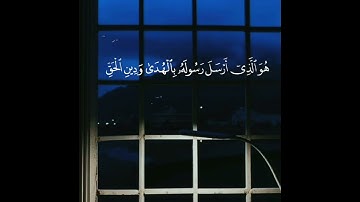 هُوَ ٱلَّذِىٓ أَرْسَلَ رَسُولَهُۥ بِٱلْهُدَىٰ وَدِينِ ٱلْحَقِّ